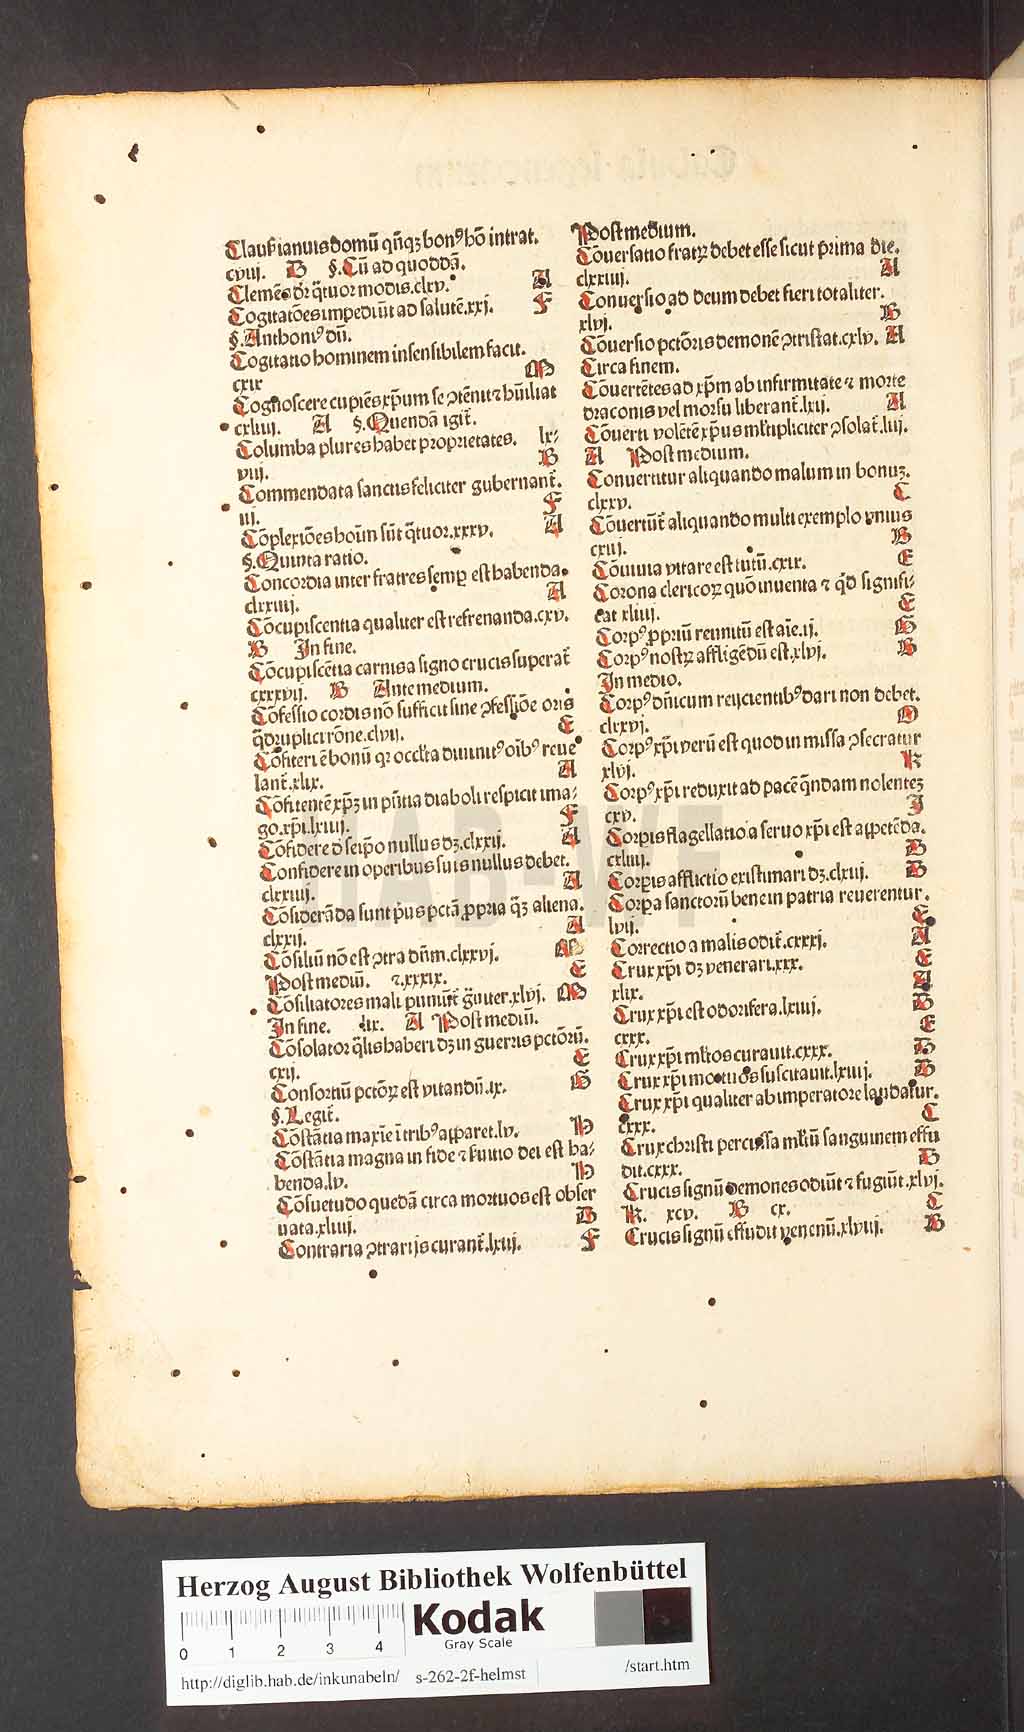 Clausis ianuis domū qñqꝫ bonꝰ hō intrat.
cviij. B §. Cū ad quoddā.
Clemēs dr̄ q̄tuor modis. clxv. A
Cogitatōes impediūt ad salutē. xxj. F
§. Anthoniꝰ dū.
Cogitatio hominem insensibilem facit.
cxix M
Cognoscere cupiēs xp̄um se ꝯtēnit ⁊ hūiliat
cxliiij. A §. Quendā igit̄.
Columba plures habet proprietates. lx⸗
viij. B
Commendata sanctis feliciter gubernant̄.
iij. F
Cōplexiōes hoīm sūt q̄tuor. xxxv. A
§. Quinta ratio.
Concordia inter fratres semꝑ est habenda.
clxxiiij. A
Cōcupiscentia qualiter est refrenanda. cxv.
B In fine.
Cōcupiscētia carnis a signo crucis superat̄
cxxxvij. B Ante medium.
Cōfessio cordis nō sufficit sine ꝯfessiōe oris
q̄druplici rōne. clvij. E
Cōfiteri ē bonū qꝛ occl̄ta diuinitꝰ oībꝰ reue
lant̄. xlix. A
Cōfitentē xp̄ꝫ in pn̄tia diaboli respicit ima⸗
go xp̄i. lxiiij. F
Cōfidere d̄ seip̄o nullus dꝫ. clxxij. A
Confidere in operibus suis nullus debet.
clxxiiij. A
Cōsiderāda sunt pͥus pctā ꝓpria q̄ꝫ aliena.
clxxij. A
Cōsiliū nō est ꝯtra dn̄m. clxxvj. M
Post mediū. ⁊. xxxix. E
Cōsiliatores mali puniūt̄ gͣuiter. xlvj. M
In fine. lix. A Post mediū.
Cōsolator q̄lis haberi dꝫ in guerris pctōrū.
cxij. E
Consortiū pctōꝝ est vitandū. ix. G
§. Legit̄.
Cōstātia maxīe ī tribꝰ apparet. lv. H
Cōstātia magna in fide ⁊ s̄uitio dei est ha⸗
benda. lv. H
Cōsuetudo quedā circa mortuos est obser
uata. xliiij. D
Contraria ꝯtrarijs curant̄. lxiij. F
Post medium.
Cōuersatio fratꝝ debet esse sicut prima die.
clxxiiij. A
Conuersio ad deum debet fieri totaliter.
xlvj. B
Cōuersio pctōris demonē ꝯtristat. cxlv. A
Circa finem.
Cōuertētes ad xp̄m ab infirmitate ⁊ morte
draconis vel morsu liberant̄. lxij. A
Cōuerti volētē xp̄us ml̄tipliciter ꝯsolat̄. liij.
A Post medium.
Conuertitur aliquando malum in bonuꝫ.
clxxv. C
Cōuertūt̄ aliquando multi exemplo vnius
cxiij. B
Cōuiuia vitare est tutū. cxix. E
Corona clericoꝝ quō inuenta ⁊ qͥd signifi⸗
cat xliiij. E
Corpꝰ ꝓpriū reunitū est aīe. ij. G
Corpꝰ nostꝝ affligēdū est. xlvj. B
In medio.
Corpꝰ dn̄icum reijcientibꝰ dari non debet.
clxxvj. O
Corpꝰ xp̄i verū est quod in missa ꝯsecratur
xlvj. K
Corpꝰ xp̄i reduxit ad pacē q̄ndam nolenteꝫ
cxv. I
Corpis flagellatio a seruo xp̄i est appetēda.
cxliiij. B
Corpis afflictio existimari dꝫ. clxij. B
Corpa sanctorū bene in patria reuerentur.
lvij. E
Correctio a malis odit̄. cxxxj. A
Crux xp̄i dꝫ venerari. xxx. E
xlix. A
Crux xp̄i est odorifera. lxiiij. B
cxxx. E
Crux xp̄i ml̄tos curauit. cxxx. B
Crux xp̄i mortuos suscitauit. lxiiij. B
Crux xp̄i qualiter ab imperatore laudatur.
cxxx. C
Crux christi percussa ml̄tū sanguinem effu
dit. cxxx. B
Crucis signū demones odiūt ⁊ fugiūt. xlvj.
K. xcv. B cx. C
Crucis signū effudit venenū. xlviij. B
HAB-WF
Herzog August Bibliothek Wolfenbüttel
0 1 2 3 4
Kodak
Gray Scale
http://diglib.hab.de/inkunabeln/ s-262-2f-helmst /start.htm